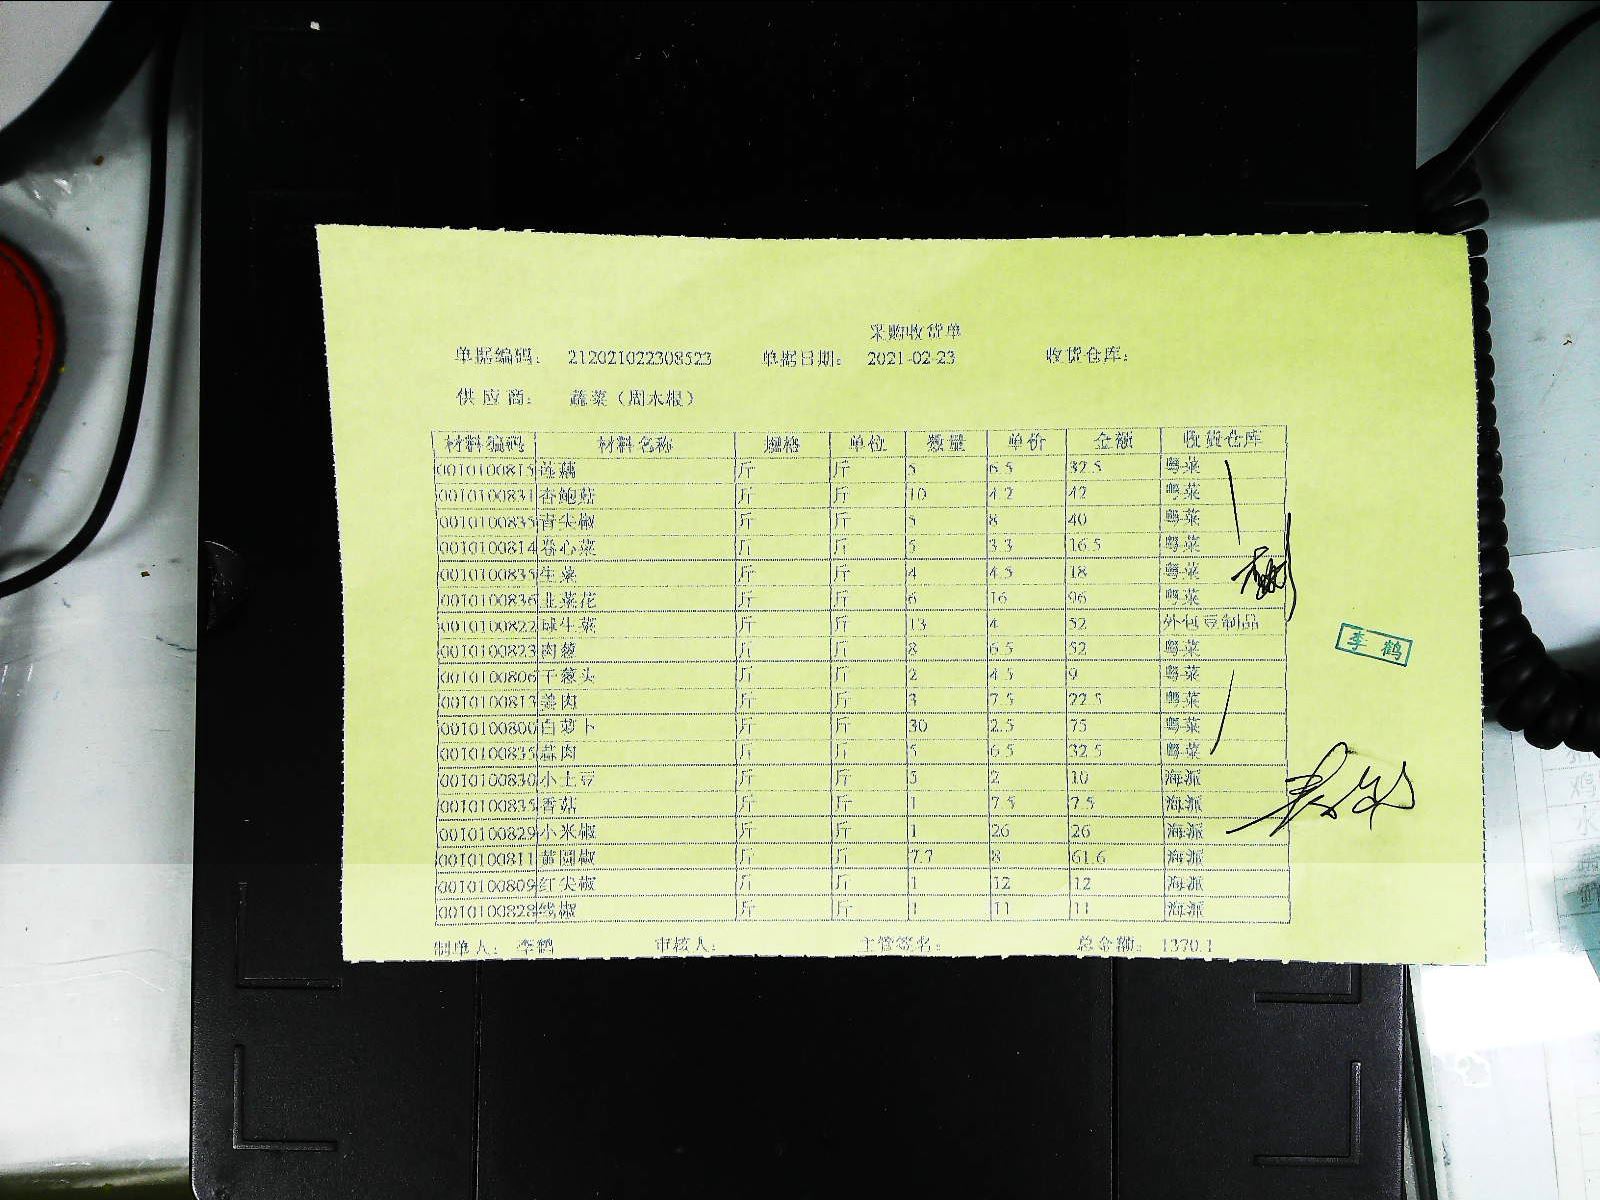 采购收货单
单据编码： 212021022308523 单据日期： 2021-02-23 收货仓库：
供应商： 蔬菜（周木根）
材料编码 材料名称 规格 单位 数量 单价 金额 收货仓库
0010100815 莲藕 斤 斤 5 6.5 32.5 粤菜
0010100831 杏鲍菇 斤 斤 10 4.2 42 粤菜
0010100835 青尖椒 斤 斤 5 8 40 粤菜
0010100814 卷心菜 斤 斤 5 3.3 16.5 粤菜
0010100835 生菜 斤 斤 4 4.5 18 粤菜
0010100836 韭菜花 斤 斤 6 16 96 粤菜
0010100822 球生菜 斤 斤 13 4 52 外包豆制品
0010100823 肉葱 斤 斤 8 6.5 52 粤菜
0010100806 干葱头 斤 斤 2 4.5 9 粤菜
0010100813 姜肉 斤 斤 3 7.5 22.5 粤菜
0010100800 白萝卜 斤 斤 30 2.5 75 粤菜
0010100835 蒜肉 斤 斤 5 6.5 32.5 粤菜
0010100830 小土豆 斤 斤 5 2 10 海派
0010100835 香菇 斤 斤 1 7.5 7.5 海派
0010100829 小米椒 斤 斤 1 26 26 海派
0010100811 黄圆椒 斤 斤 7.7 8 61.6 海派
0010100809 红尖椒 斤 斤 1 12 12 海派
0010100828 线椒 斤 斤 1 11 11 海派
制单人： 李鹤 审核人： 主管签名： 总金额： 1370.1
李鹤